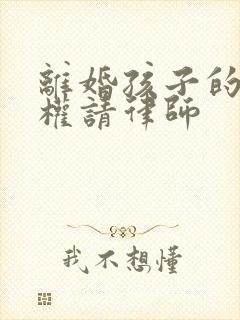 離婚孩子的
權請律師
我不想懂